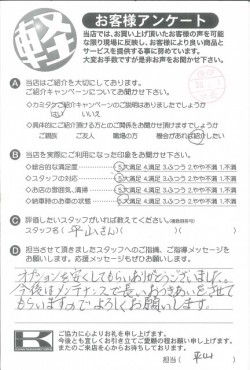 軽
お客様アンケート
当店では、お買い上げ頂いたお客様の声を可能
な限り現場に反映し、お客様により良い商品と
サービスを提供する事に努めています。
大変お手数ですが是非お声をお聞かせ下さい。
A 当店はご紹介を大切にしております。
ご紹介キャンペーンについてお聞かせ下さい。
◇カミタケ紹介キャンペーンのご説明はありましたでしょうか
はい いいえ
◇具体的にご紹介頂ける方とのご関係をお聞かせ頂けますでしょうか
ご親戚 ご友人 職場の方 機会があれば紹介したい
B 当店を実際にご利用になった印象をお聞かせ下さい。
◇総合的な満足度 5.大満足 4.満足 3.ふつう 2.やや不満 1.不満
◇スタッフの対応 5.大満足 4.満足 3.ふつう 2.やや不満 1.不満
◇お店の雰囲気、清掃 5.大満足 4.満足 3.ふつう 2.やや不満 1.不満
◇納車時のお車の状態 5.大満足 4.満足 3.ふつう 2.やや不満 1.不満
C 評価したいスタッフがいれば教えてください。
スタッフ名(平山さん)( )( )
D 担当させて頂きましたスタッフへのご指摘、ご指導メッセージを
お願いします。応援メッセージもぜひお願いします。
オプションを安くしてもらいありがとうございました。
今後はメンテナンスで長いおつきあいをさせて
もらいますのでよろしくお願いします。
ご協力に心よりお礼を申し上げます。
今後とも宜しくお引き立てご愛顧の程お願い申し上げます。
またのご来店を心からお待ちしております。
担当(平山)